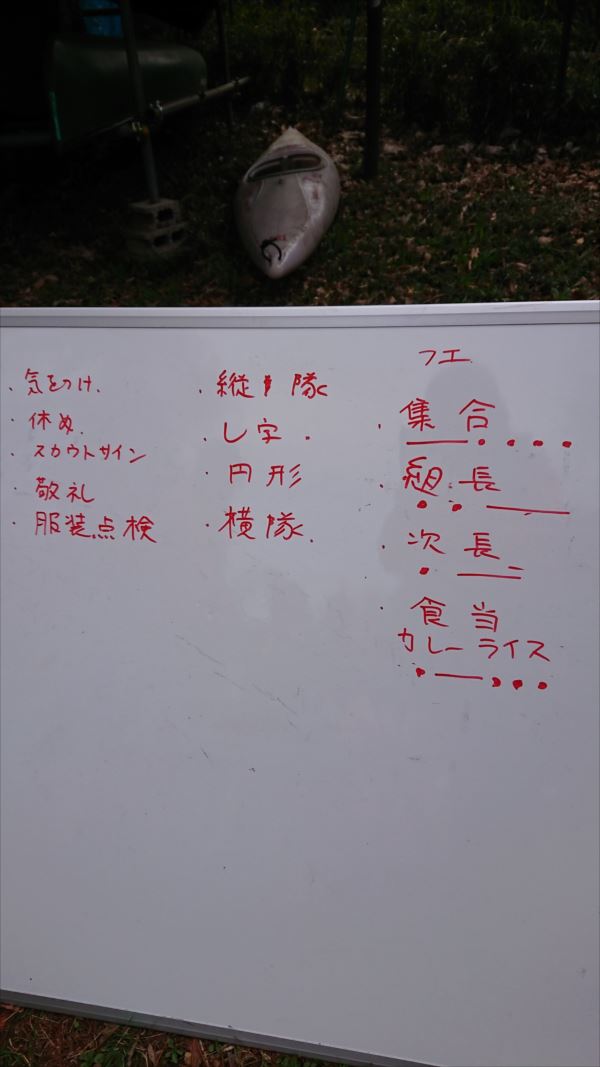 ・気をつけ.
・休め.
・スカウトサイン
・敬礼
・服装点検
・縦隊
・し字.
・円形
・横隊.
フエ
・集合
・組長
・次長
・食当
カレーライス